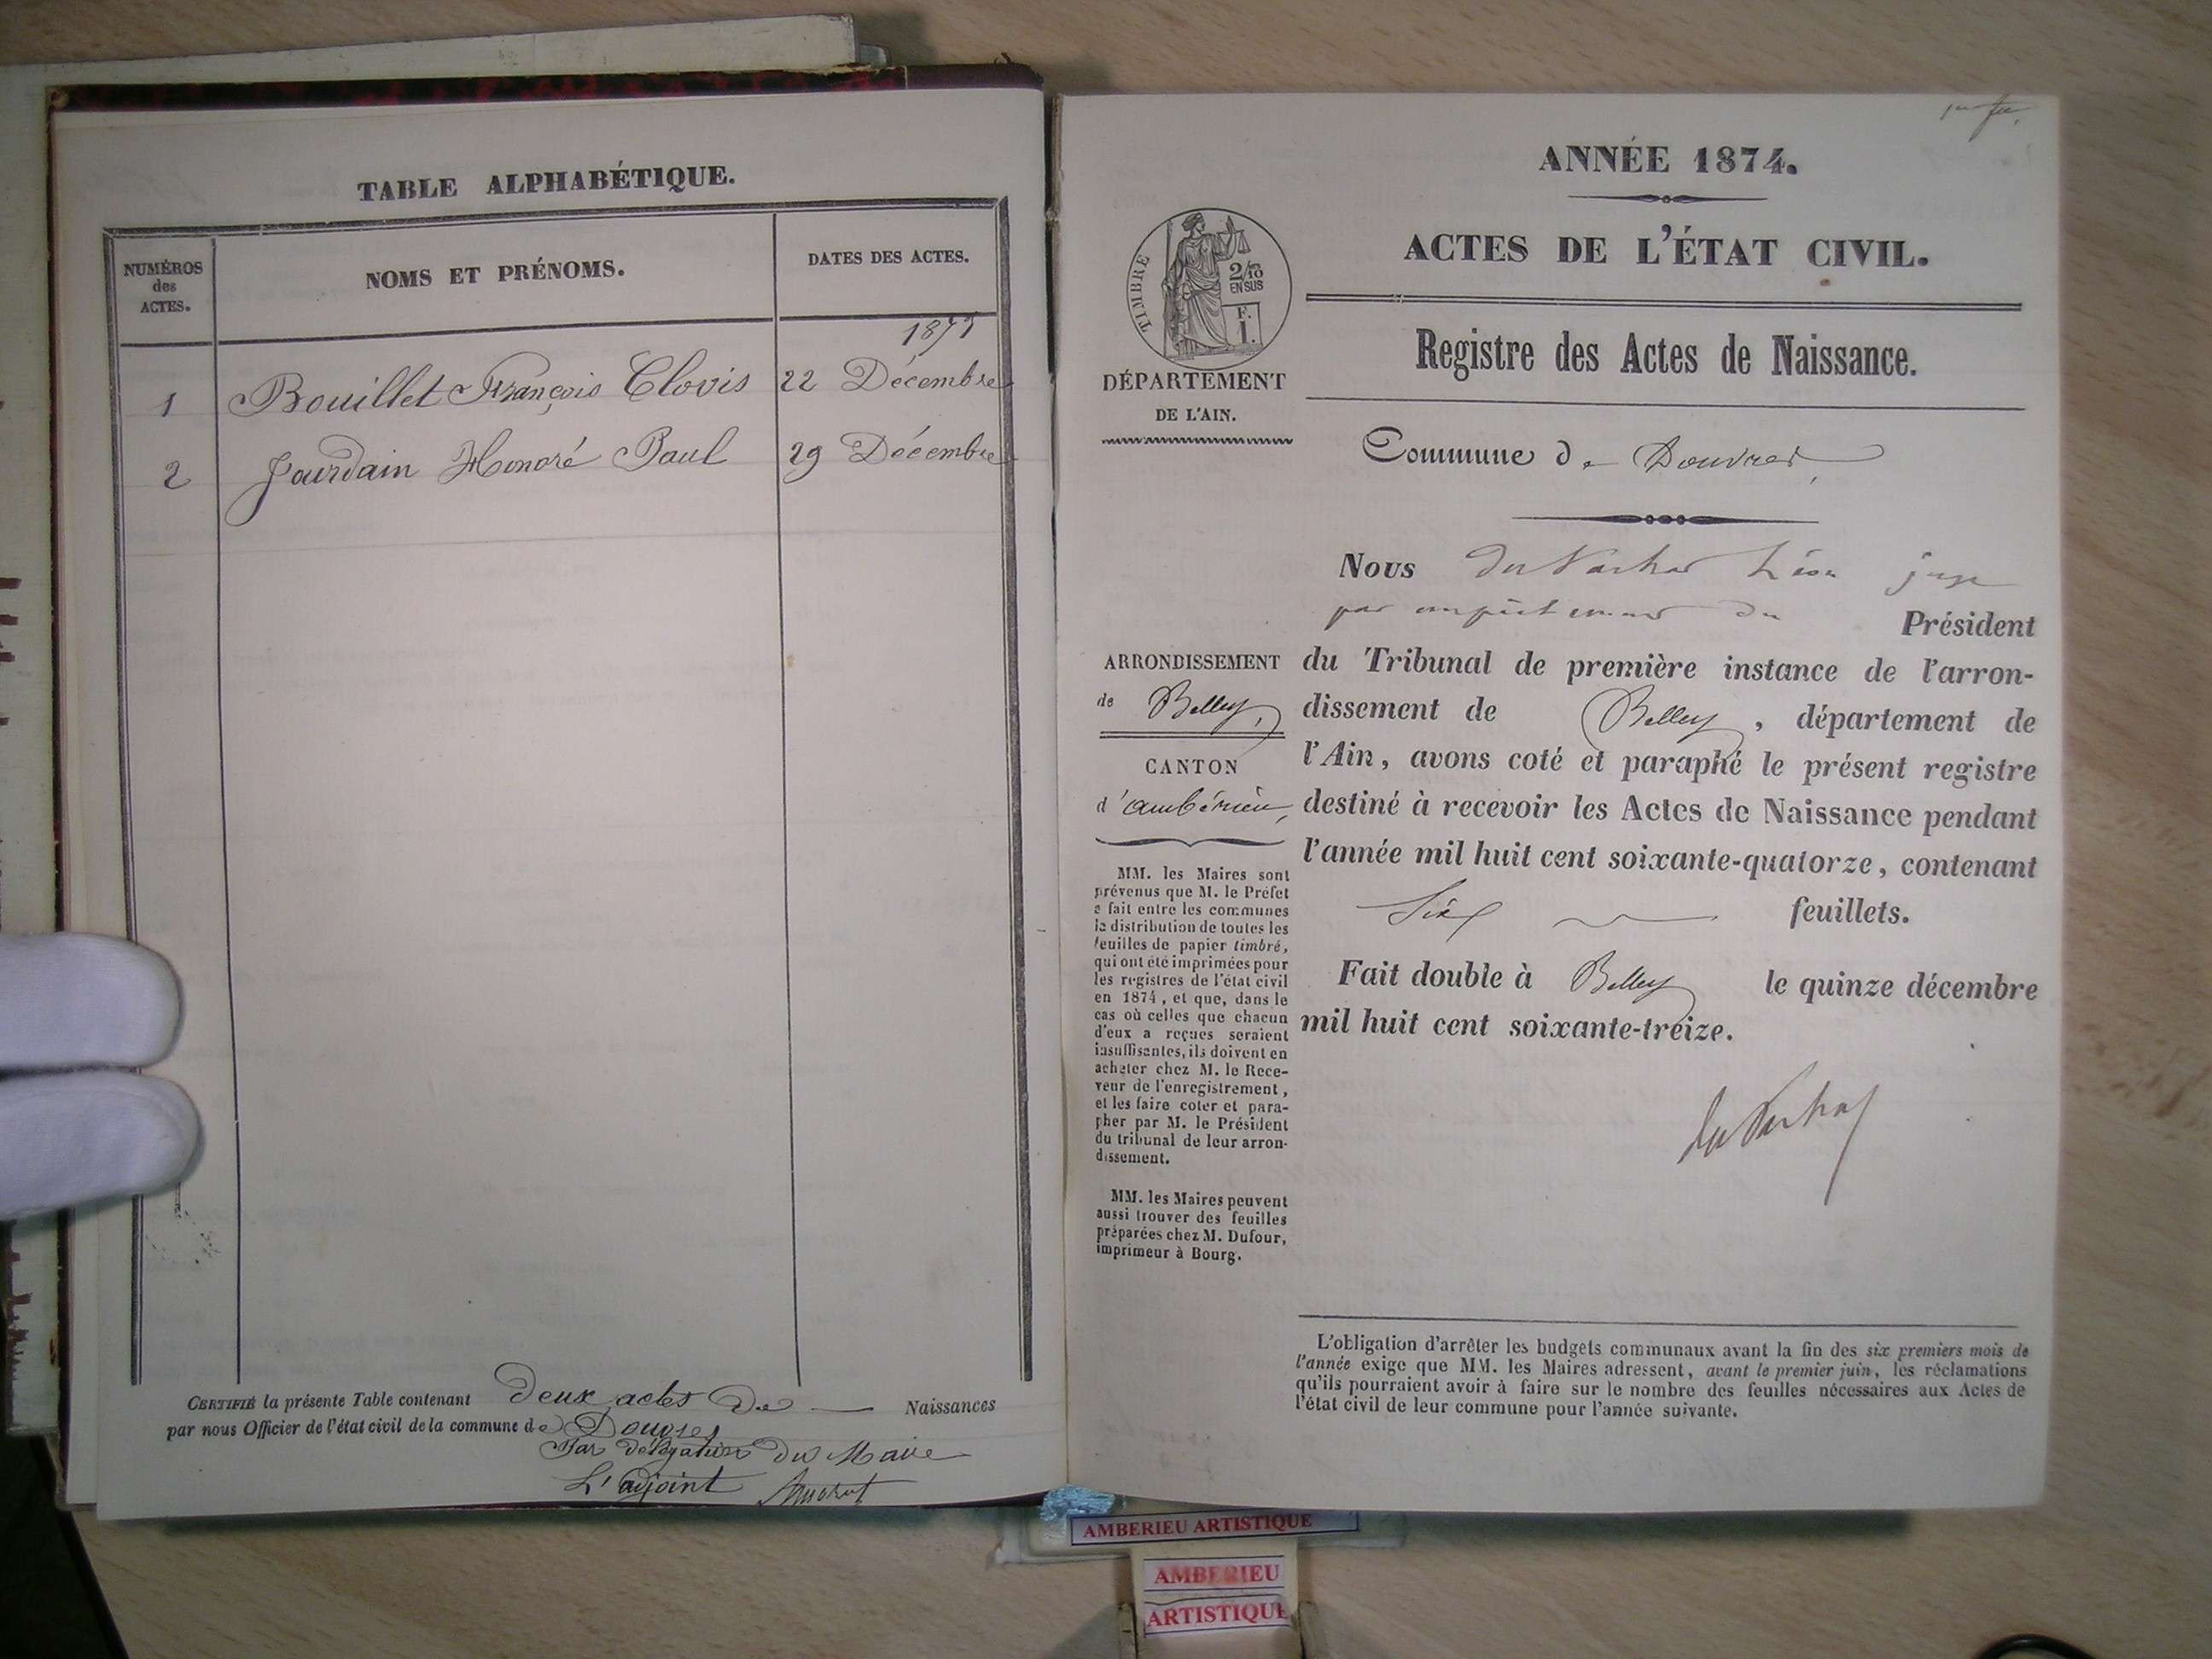 TABLE ALPHABÉTIQUE.
NUMÉROS
des
ACTES.
NOMS ET PRÉNOMS.
DATES DES ACTES.
1 Bouillet François Clovis 22 Décembre
2 Jourdain Honoré Paul 29 Décembre
CERTIFIÉ la présente Table contenant deux actes de — Naissances
par nous Officier de l'état civil de la commune de Douvres
Par délégation du Maire
L'adjoint
ANNÉE 1874.
ACTES DE L'ÉTAT CIVIL.
TIMBRE
2/10
EN SUS
F.
1.
DÉPARTEMENT
DE L'AIN.
Registre des Actes de Naissance.
Commune de Douvres
Nous Léon juge
par empêchement du Président
du Tribunal de première instance de l'arron-
dissement de Belley, département de
l'Ain, avons coté et paraphé le présent registre
destiné à recevoir les Actes de Naissance pendant
l'année mil huit cent soixante-quatorze, contenant
Six feuillets.
Fait double à Belley le quinze décembre
mil huit cent soixante-treize.
ARRONDISSEMENT
de Belley,
CANTON
d'ambérieu,
MM. les Maires sont
prévenus que M. le Préfet
a fait entre les communes
la distribution de toutes les
feuilles de papier timbré,
qui ont été imprimées pour
les registres de l'état civil
en 1874, et que, dans le
cas où celles que chacun
d'eux a reçues seraient
insuffisantes, ils doivent en
acheter chez M. le Rece-
veur de l'enregistrement,
et les faire coter et para-
pher par M. le Président
du tribunal de leur arron-
dissement.
MM. les Maires peuvent
aussi trouver des feuilles
préparées chez M. Dufour,
imprimeur à Bourg.
L'obligation d'arrêter les budgets communaux avant la fin des six premiers mois de
l'année exige que MM. les Maires adressent, avant le premier juin, les réclamations
qu'ils pourraient avoir à faire sur le nombre des feuilles nécessaires aux Actes de
l'état civil de leur commune pour l'année suivante.
AMBERIEU ARTISTIQUE
AMBERIEU
ARTISTIQUE